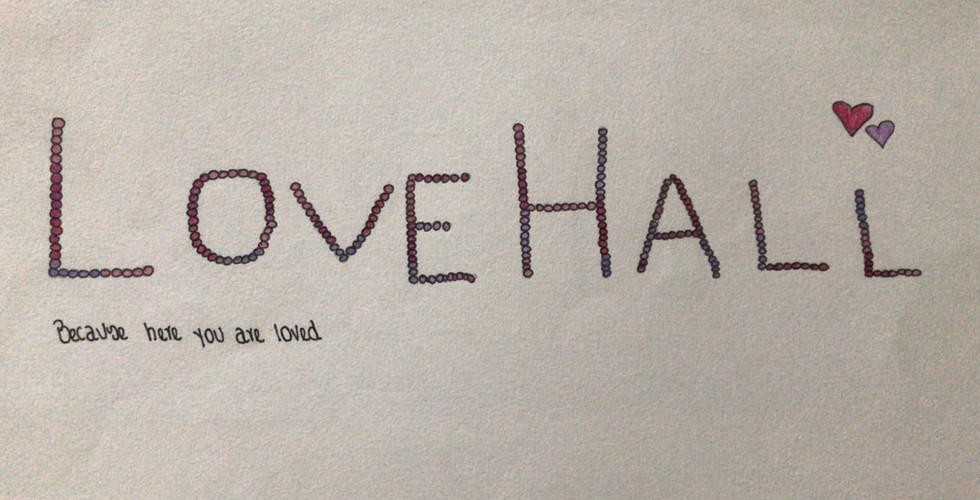 LOVE HALL
Because here you are loved